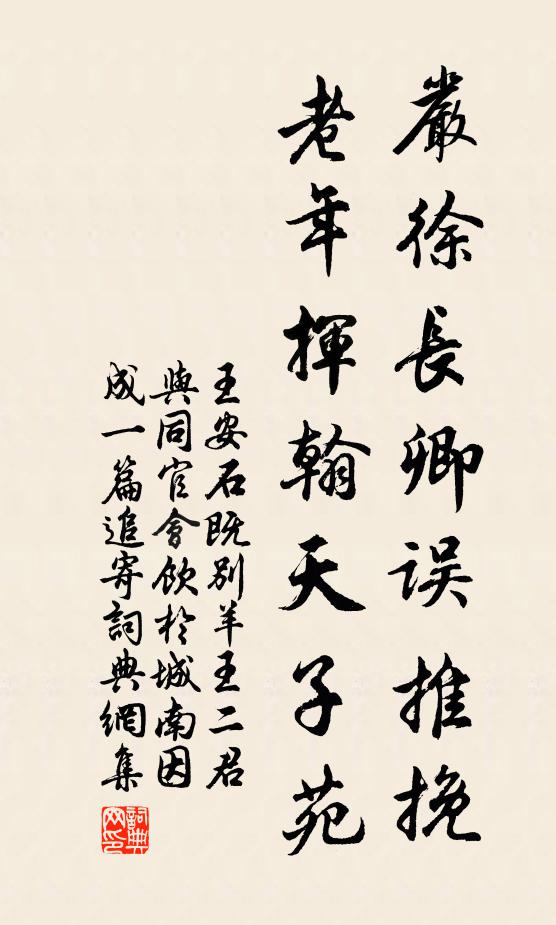 嚴徐長卿误推挽
老年揮翰天子苑
王安石既别羊王二君
與同官會飲於城南因
成一篇追寄詞典網集
詞典
网印